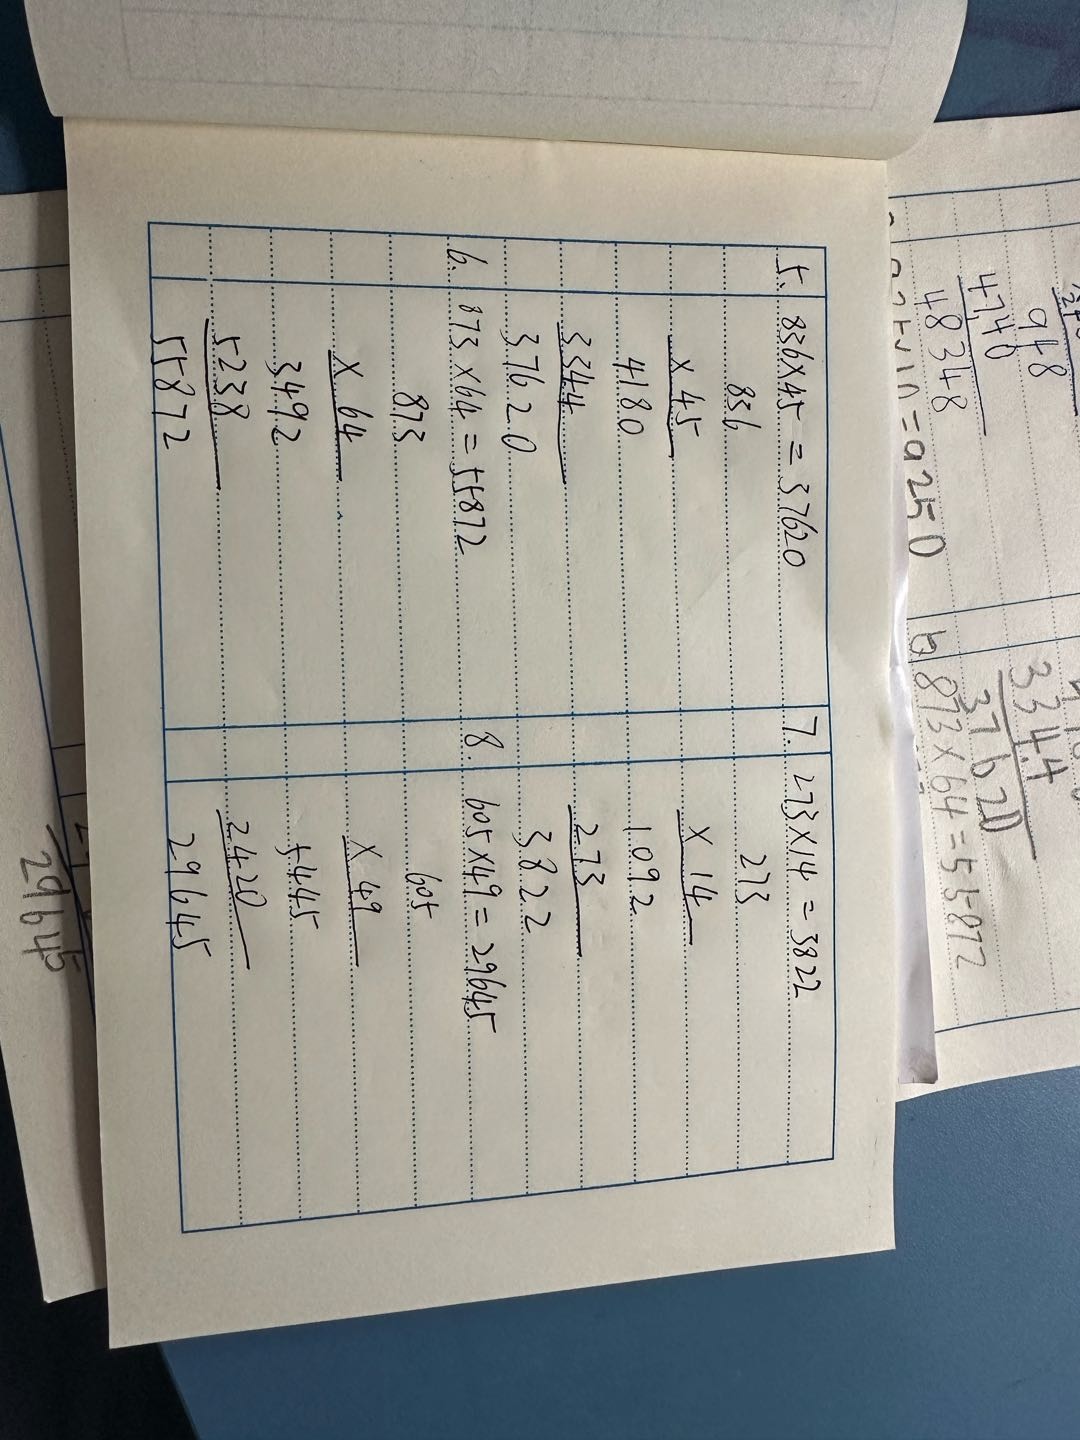 5. 836×45=37620
836
×45
4180
3344
37620
6. 873×64=55872
873
×64
3492
5238
55872
7. 273×14=3822
273
×14
1092
273
3822
8. 605×49=29645
605
×49
5445
2420
29645
948
4740
48348
3344
37620
6 873×64=55872
29645